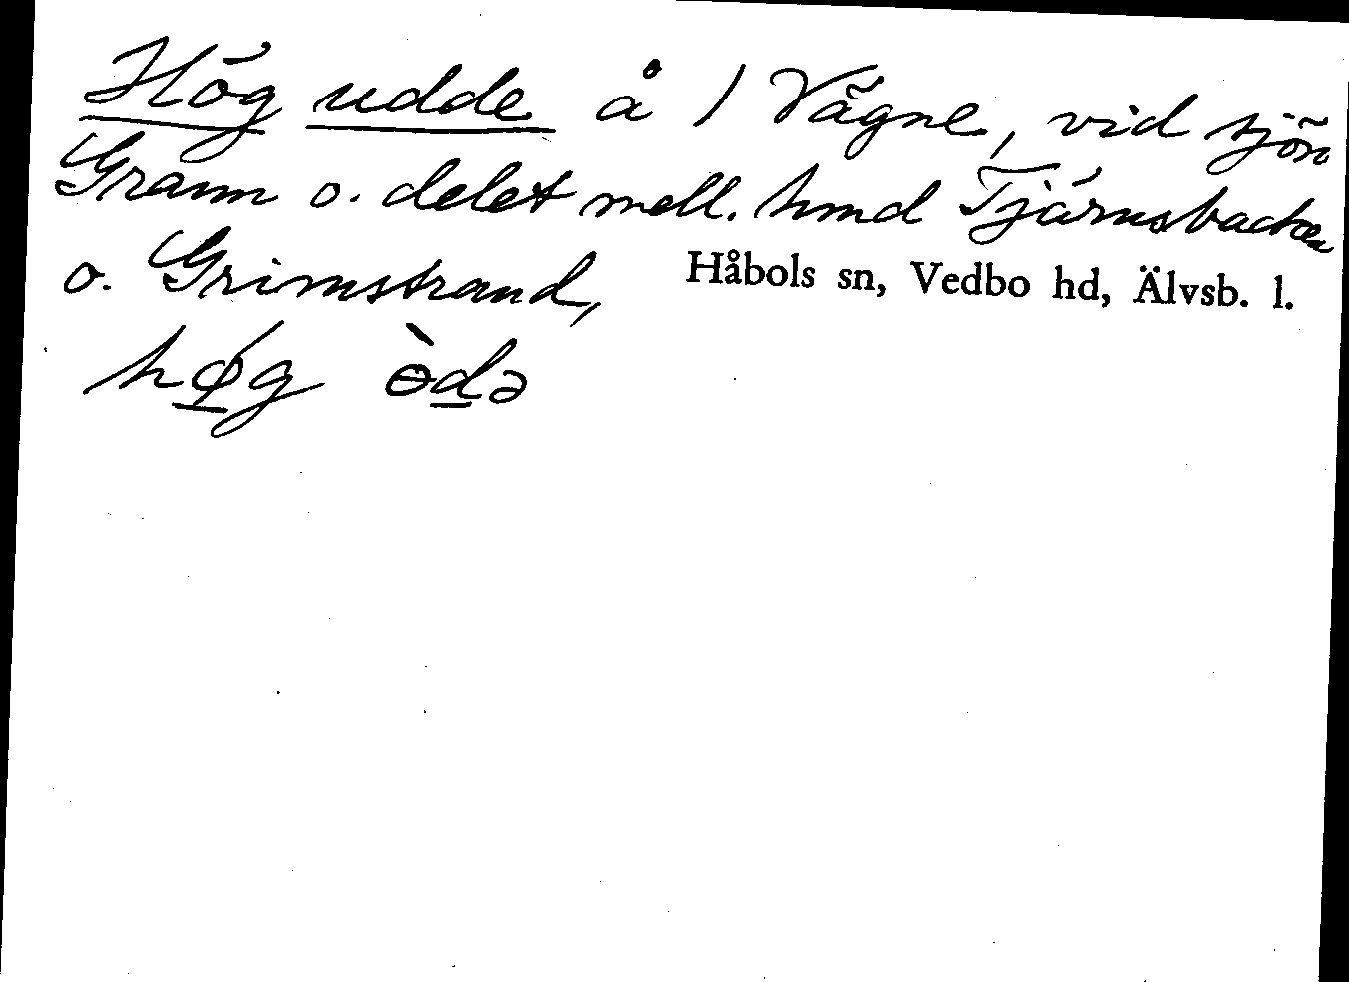 Hög udde å 1 Vägne, vid sjön
Grann o. delet mell. hmd Tjärnsbacken
o. Grimstrand,
Håbols sn, Vedbo hd, Älvsb. l.
hǿ̲g ɵ̀d̲ə